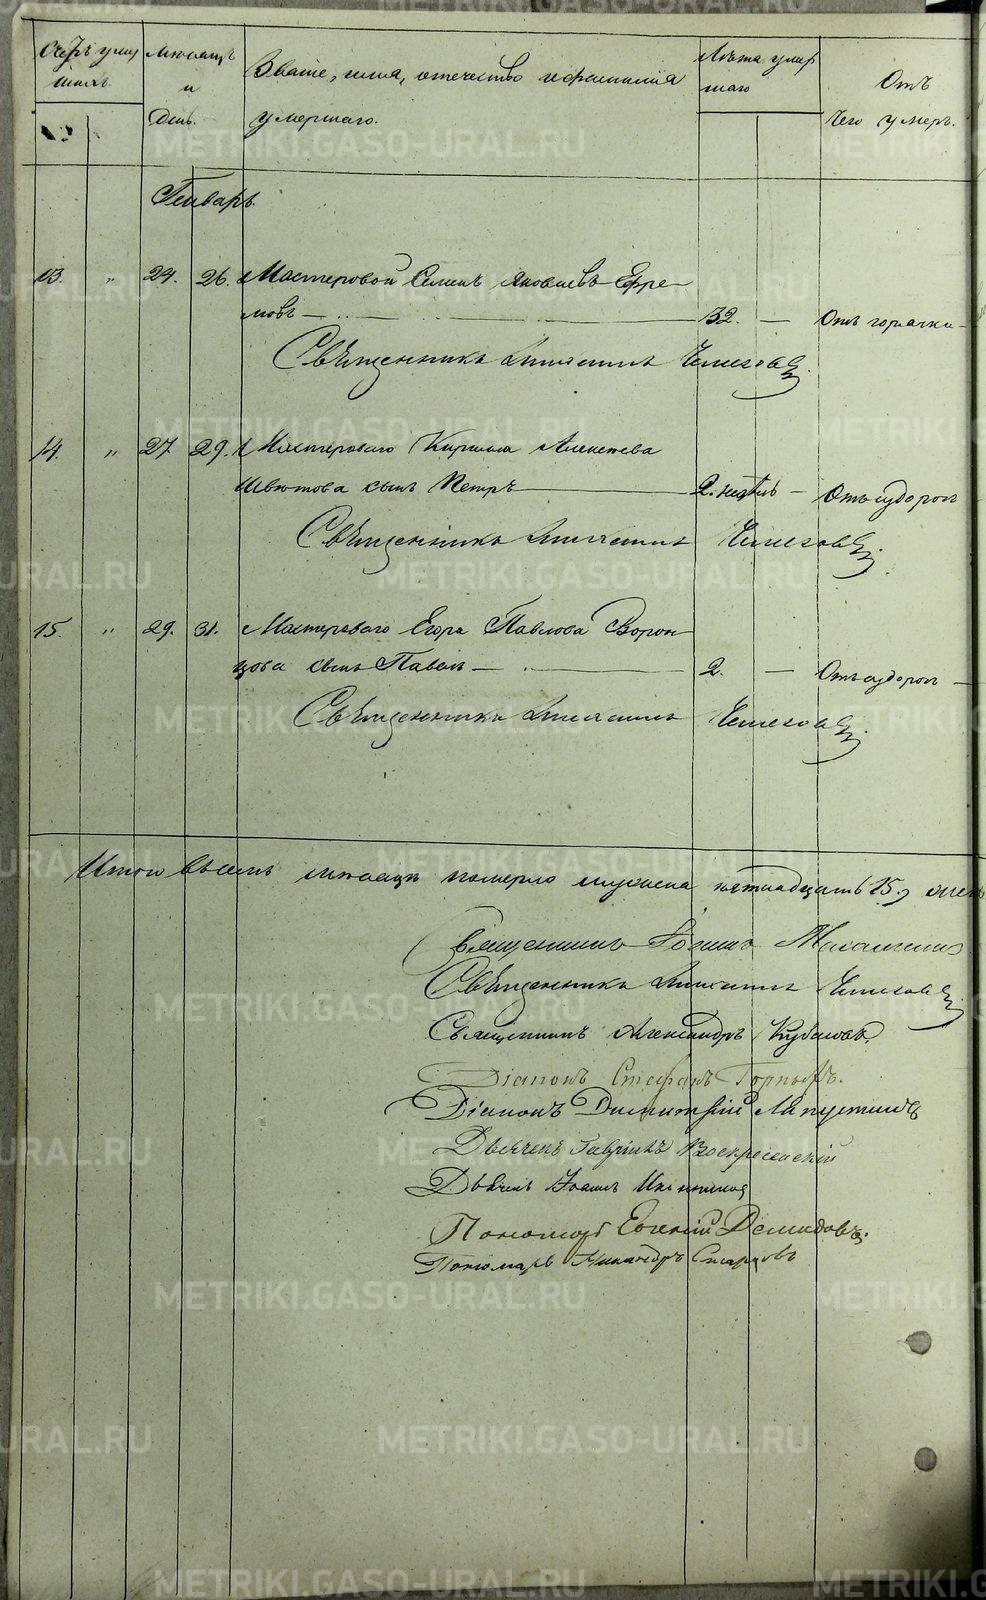 Счетъ умер
шихъ.
Мѣсяцъ
и
день.
Званіе, имя, отечество и фамилія
умершаго.
Лѣта умер
шаго
Отъ
чего умеръ.
Генварь.
13. " 24. 26. Мастеровой Семенъ Яковлевъ Ефре-
мовъ — 32. — Отъ горячки —
Священникъ Чемезовъ
14. " 27 29. Мастероваго Кирила Алексѣева
сынъ Петръ — 2. недѣль — Отъ судорог
Священникъ Чемезовъ
15. " 29. 31. Мастероваго Егора Павлова Ворон
цова сынъ Павелъ — 2. — Отъ судорог —
Священникъ Чемезовъ
Итого въ семъ мѣсяцѣ померло мужеска пятнадцать 15,
Священникъ Іоаннъ
Священникъ Чемезовъ
Священникъ Александръ
Діаконъ Стефанъ
Діаконъ Димитрій Лапустинъ
Дьячекъ Гавріилъ Воскресенскій
Дьячекъ Іоаннъ
Пономарь Евгеній Демидовъ.
Пономарь Никандръ
METRIKI.GASO-URAL.RU